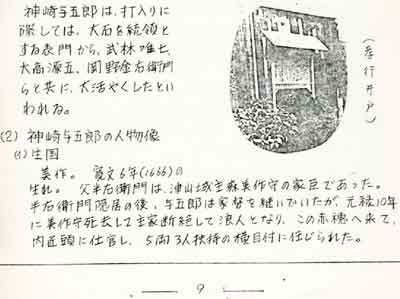 神崎与五郎は、打入りに
際しては、大石を統領と
する表門から、武林唯七、
大高源五、岡野金右衛門
らと共に、大活やくしたとい
われる。
(2) 神崎与五郎の人物像
(1) 生国
美作。 寛文6年(1666)の
生れ。 父半右衛門は、津山城主森美作守の家臣であった。
半右衛門隠居の後、与五郎は家督を継いでいたが、元禄10年
に美作守死去して主家断絶して浪人となり、この赤穂へ来て、
内匠頭に仕官し、5両3人扶持の横目付に任じられた。
井戸)
9